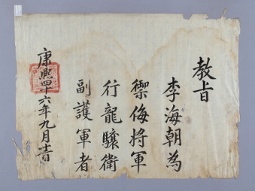 教旨
李海朝為
禦侮將軍
行龍驤衛
副護軍者
康熙四十六年九月